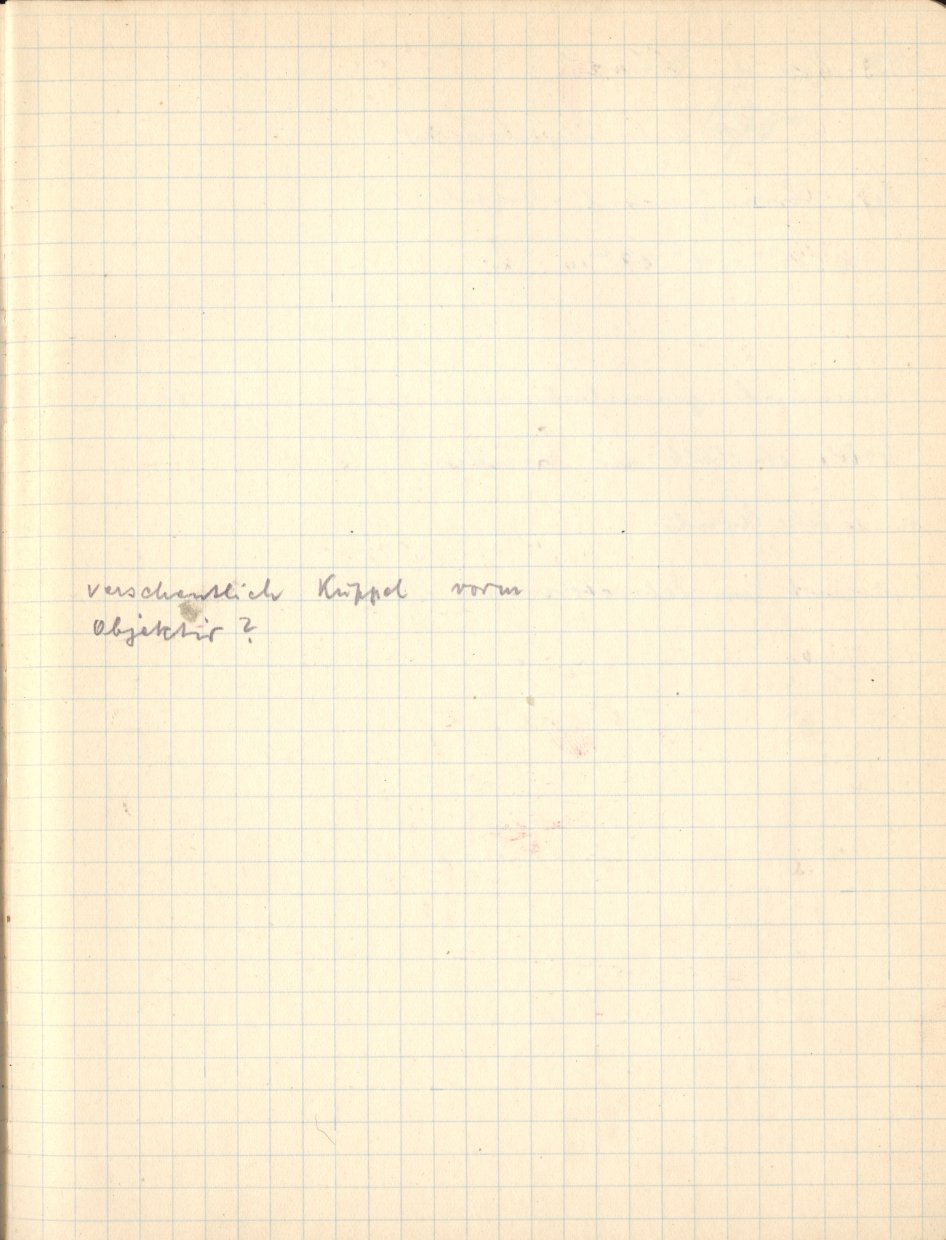 versehentlich Kuppel vorm
Objektiv?